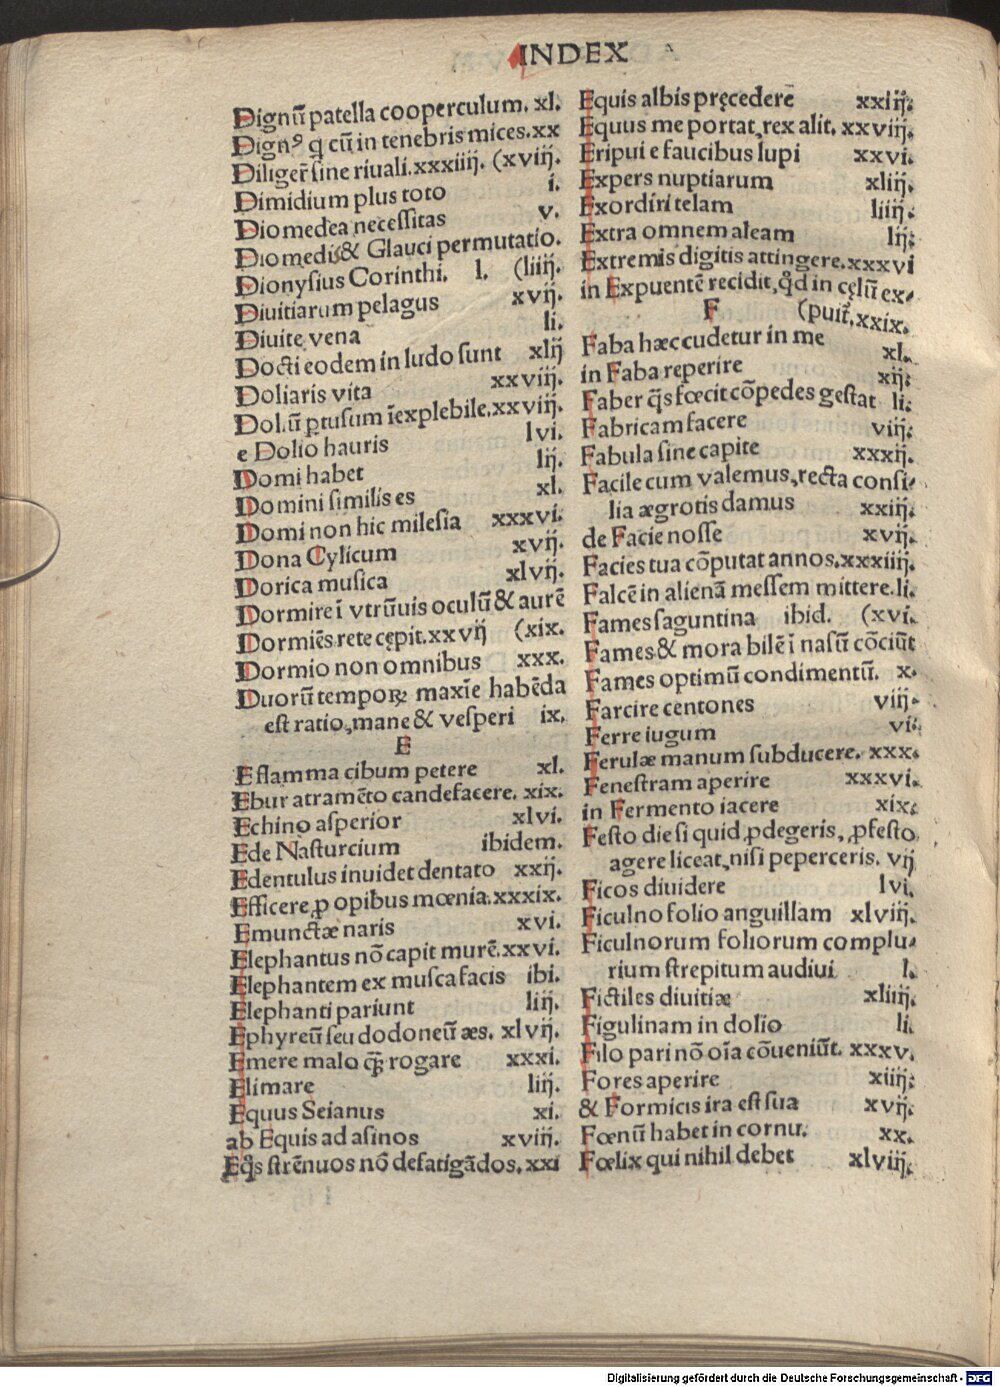 INDEX
Dignũ patella cooperculum. xl.
Dignꝰ q̃ cũ in tenebris mices. xx
Diliger̃ sine riuali. xxxiiij. (xviij.
Dimidium plus toto i.
Diomedea necessitas v.
Diomedis & Glauci permutatio.
Dionysius Corinthi. l. (liij.
Diuitiarum pelagus xvij.
Diuite vena li.
Docti eodem in ludo sunt xlij
Doliaris vita xxviij.
Doliũ ꝑtusum ĩexplebile. xxviij.
e Dolio hauris lvi.
Domi habet lij.
Domini similis es xl.
Domi non hic milesia xxxvi.
Dona Cylicum xvij.
Dorica musica xlvij.
Dormire ĩ vtrũuis oculũ & aurẽ
Dormiẽs rete cępit. xxvij (xix.
Dormio non omnibus xxx.
Duorũ temporꝝ maxĩe habẽda
est ratio, mane & vesperi ix.
E
E flamma cibum petere xl.
Ebur atramẽto candefacere. xix.
Echino asperior xlvi.
Ede Nasturcium ibidem.
Edentulus inuidet dentato xxij.
Efficere ꝓ opibus mœnia. xxxix.
Emunctæ naris xvi.
Elephantus nõ capit murẽ. xxvi.
Elephantem ex musca facis ibi.
Elephanti pariunt liij.
Ephyreũ seu dodoneũ æs. xlvij.
Emere malo q̃ꝫ rogare xxxi.
Elimare liij.
Equus Seianus xi.
ab Equis ad asinos xviij.
Eq̃s strẽnuos nõ defatigãdos. xxi
Equis albis pręcederẽ xxiij.
Equus me portat, rex alit. xxviij.
Eripui e faucibus lupi xxvi.
Expers nuptiarum xliij.
Exordiri telam liiij.
Extra omnem aleam lij.
Extremis digitis attingere. xxxvi
in Expuentẽ recidit, q̃d in cęlũ ex-
F (puit̃. xxix.
Faba hæc cudetur in me xl.
in Faba reperire xij.
Faber q̃s fœcit cõpedes gestat li.
Fabricam facere viij.
Fabula sine capite xxxij.
Facile cum valemus, recta consi-
lia ægrotis damus xxiij.
de Facie nosse xvij.
Facies tua cõputat annos. xxxiiij.
Falcẽ in alienã messem mittere. li.
Fames saguntina ibid. (xvi.
Fames & mora bilẽ ĩ nasũ cõciũt
Fames optimũ condimentũ. x.
Farcire centones viij.
Ferre iugum vi.
Ferulæ manum subducere. xxx.
Fenestram aperire xxxvi.
in Fermento iacere xix.
Festo die si quid ꝓdegeris, ꝓfesto
agere liceat, nisi peperceris. vij
Ficos diuidere lvi.
Ficulno folio anguillam xlviij.
Ficulnorum foliorum complu-
rium strepitum audiui l.
Fictiles diuitiæ xliiij.
Figulinam in dolio li.
Filo pari nõ oĩa cõueniũt. xxxv.
Fores aperire xiij.
& Formicis ira est sua xvij.
Fœnũ habet in cornu. xx.
Fœlix qui nihil debet xlviij.
Digitalisierung gefördert durch die Deutsche Forschungsgemeinschaft - DFG